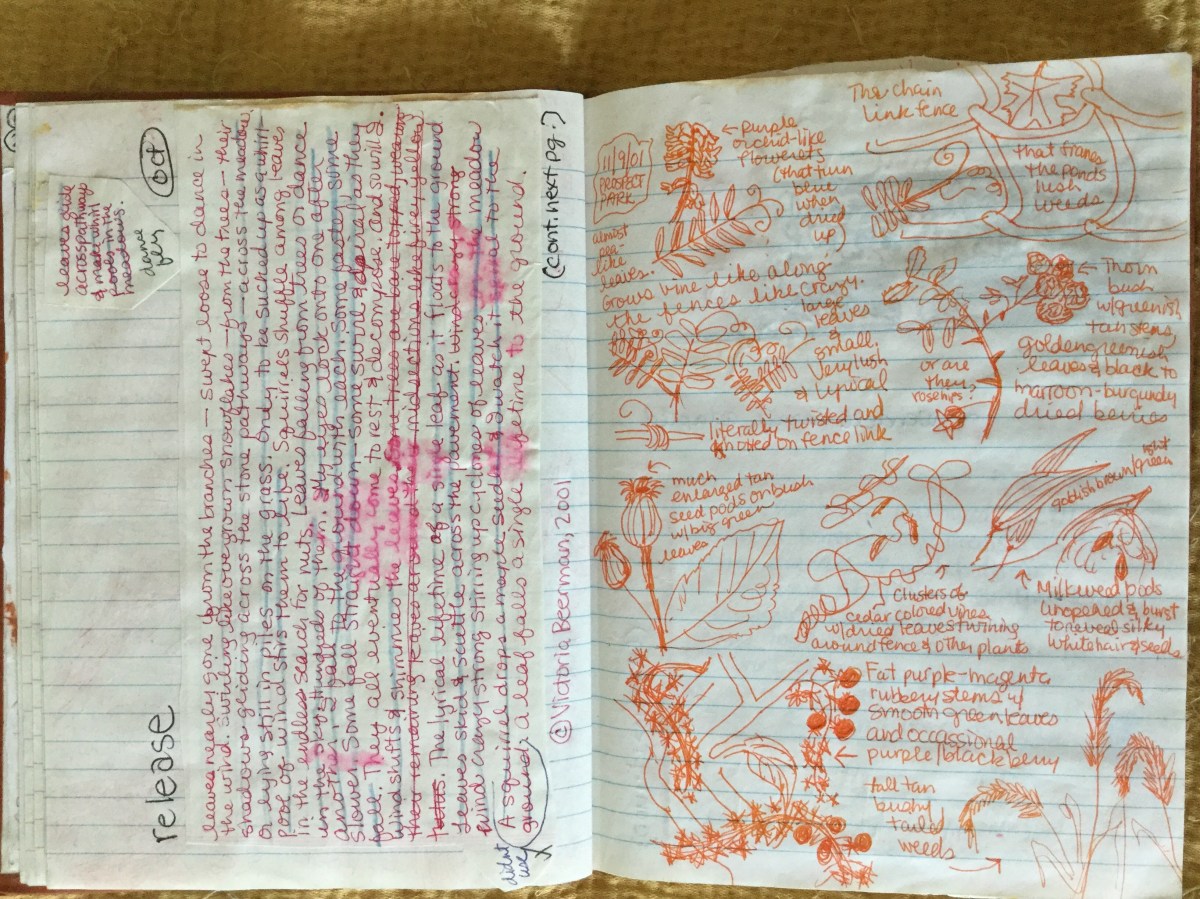 release
Oct
leaves glide
across pathways
& meet whirl
pools in the
meadows.
dance
fery
leaves nearly gone from the branches — swept loose to dance in
the wind. swirling like overgrown snowflakes — from the trees — their
shadows gliding across the stone pathways — across the meadow,
or lying still in piles on the grass. Only to be sucked up as a whirl
pool of wind stirs them to life. Squirrels shuffle among leaves
in the endless search for nuts. Leaves falling from trees or dance
another & fall to the ground with each, some faster, some
slower. Some fall straight down — some swirl & as they
fall. They all eventually come to rest & decompose. And so will I.
wind shifts & shimmies the leaves
the remaining leaves
The lyrical lifetime of a single leaf as it floats to the ground
leaves skid & scuttle across the pavement.
wind strong stirring up cyclones of leaves in the meadow
A squirrel drops a maple seed & I watch it spiral to the
ground; a leaf falls a single lifetime to the ground.
didnt
use
(cont. next pg.)
© Victoria Beerman, 2001
11/9/01
PROSPECT
PARK
← purple
orchid-like
flowerets
(that turn
blue
when
dried
up)
The chain
link fence
that frames
the ponds
lush
weeds
almost
pea-
like
leaves.
Grows vine like along
the fences like crazy.
large
leaves
&
small,
very lush
& typical
← Thorn
bush
w/greenish
tan stems,
golden greenish
leaves & black to
maroon-burgundy
dried berries
or are
they
rosehips?
literally twisted and
knotted on fence link
much
enlarged tan
seed pods on bush
w/big green
leaves
Clusters of
cedar colored vines
w/dried leaves twining
around fence & other plants
goldish brown/green
Milkweed pods
unopened & burst
to reveal silky
white hair & seeds
Fat purple-magenta
rubbery stems w/
smooth green leaves
and occassional
← purple/black berry
tall tan
bushy
tailed
weeds